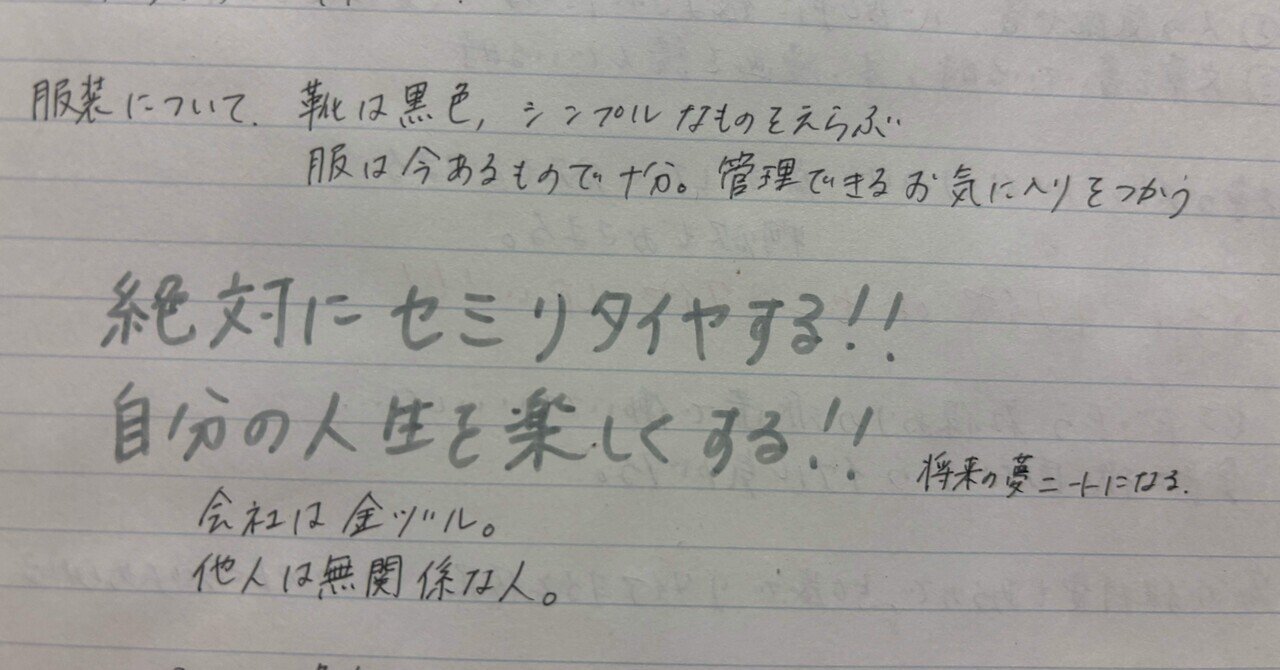 服装について. 靴は黒色, シンプルなものをえらぶ
服は今あるもので十分。管理できるお気に入りをつかう
絶対にセミリタイヤする!!
自分の人生を楽しくする!!
将来の夢ニートになる.
会社は金ヅル。
他人は無関係な人。